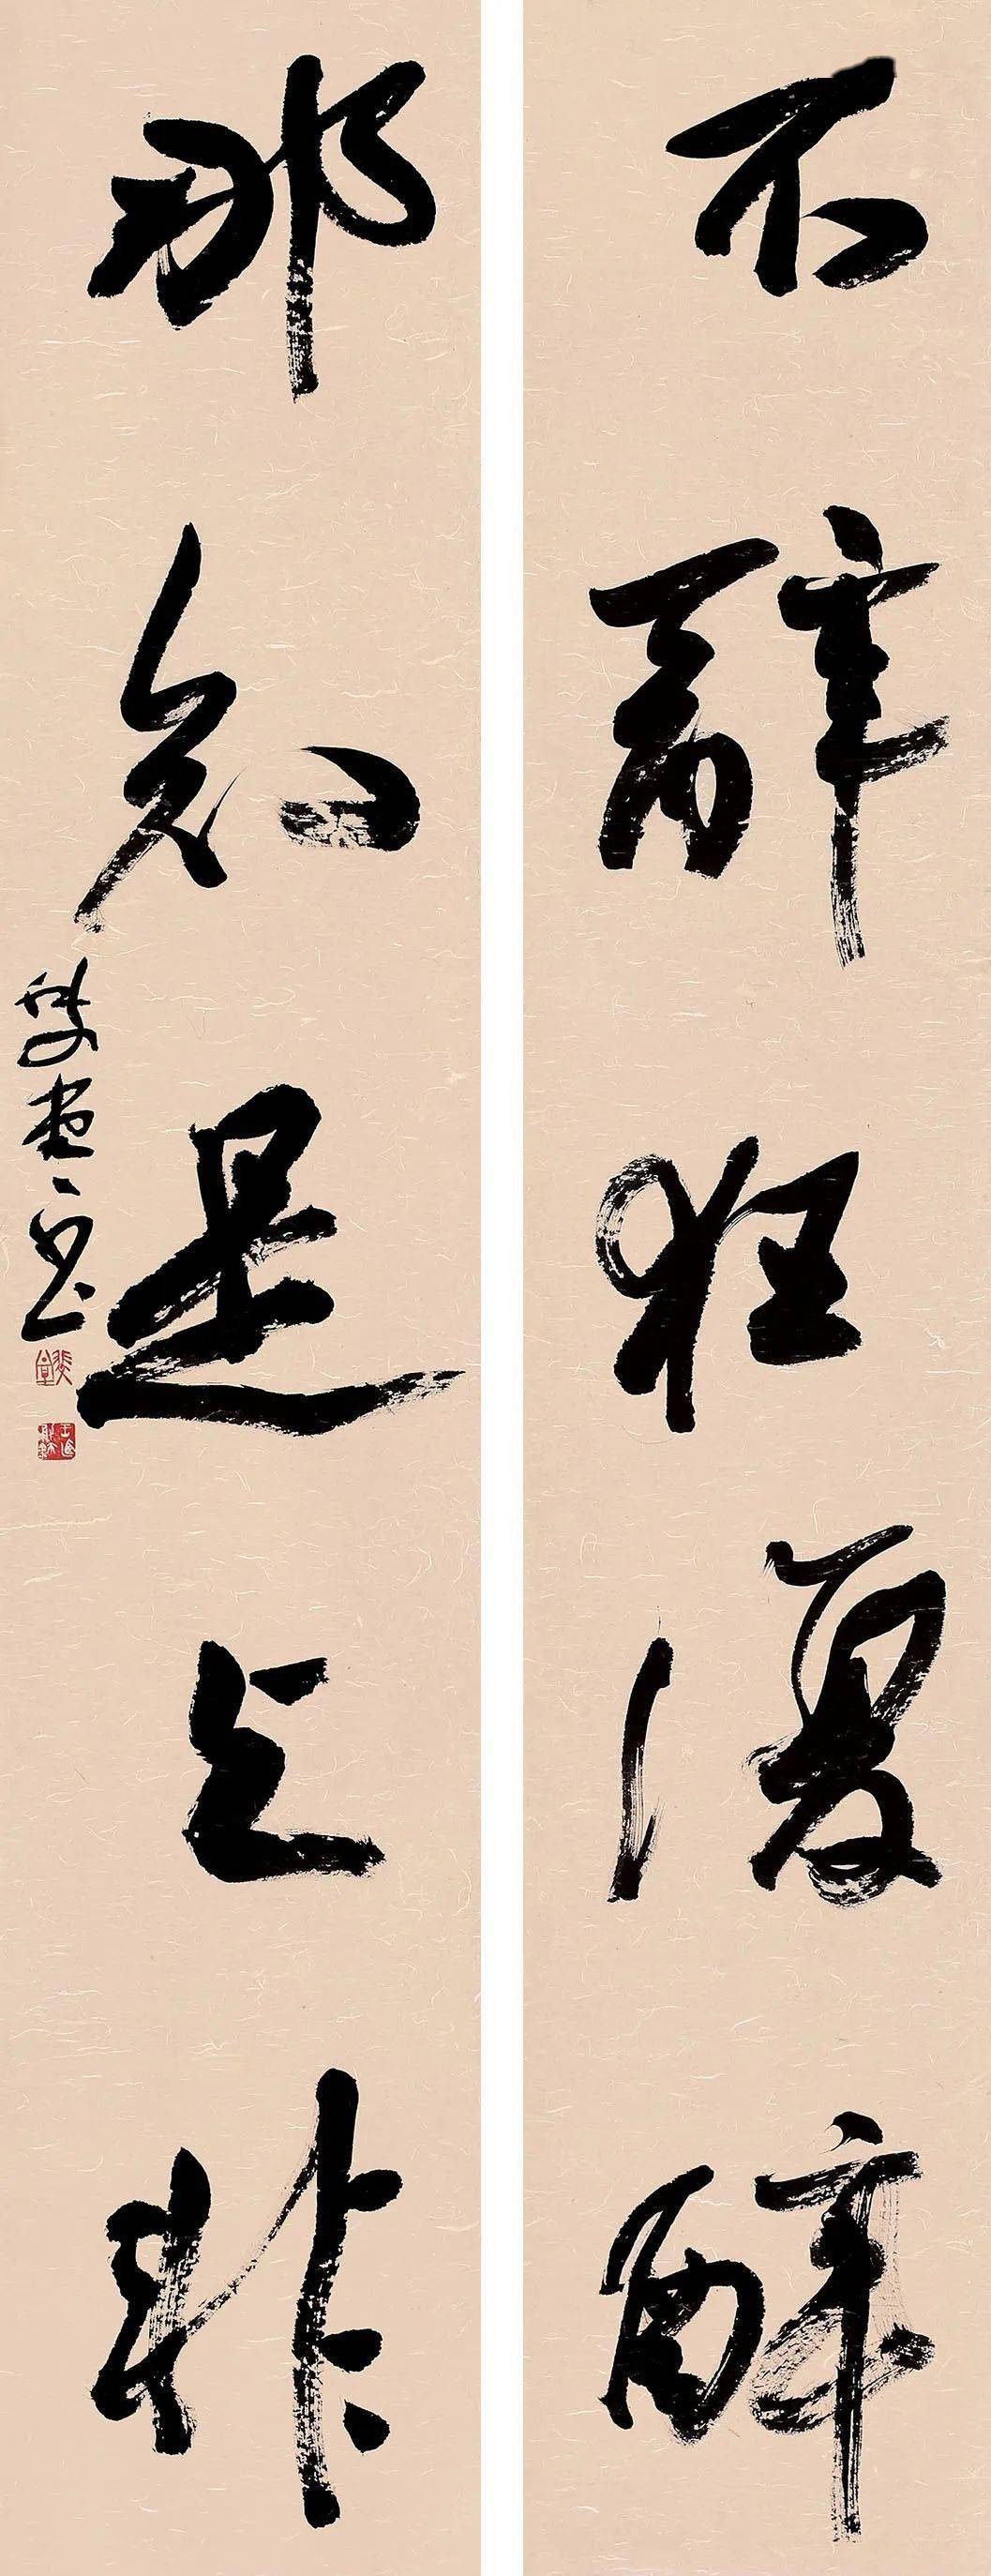 不辭狂復醉
那知是与非